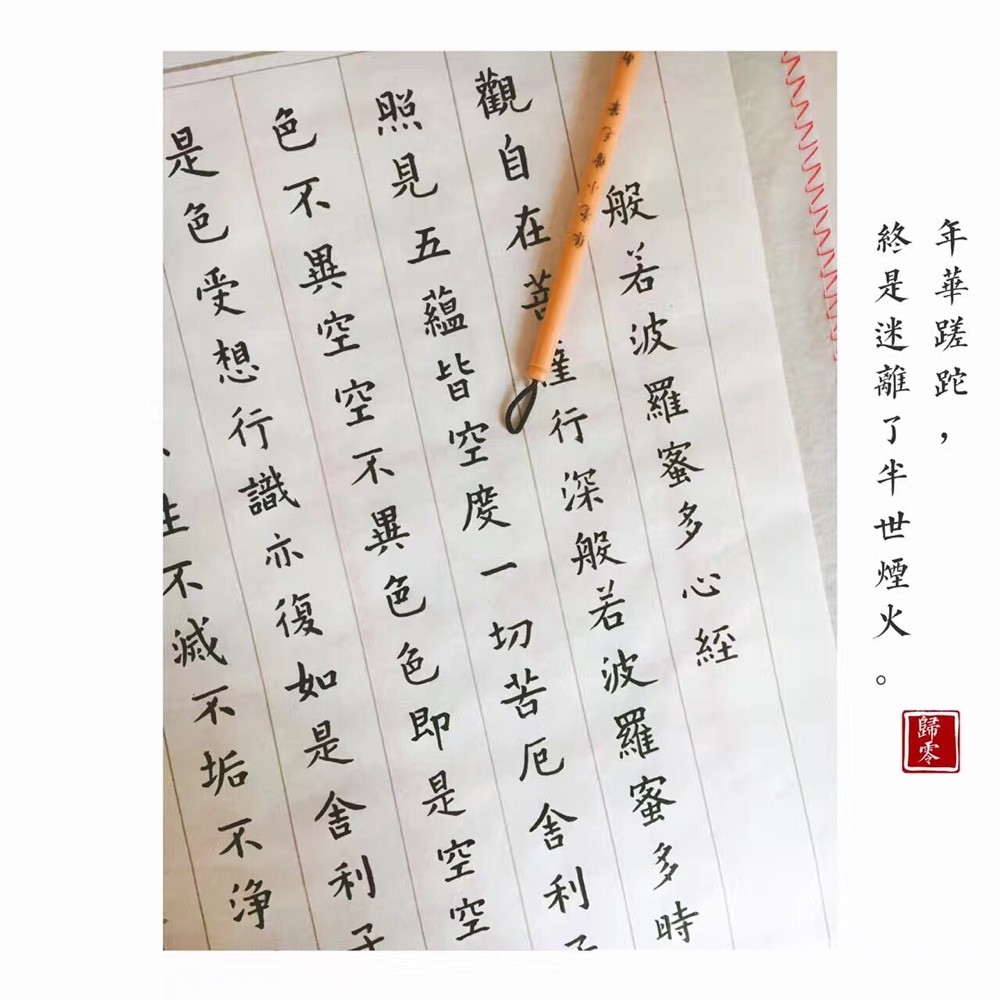 年華蹉跎，
終是迷離了半世煙火。
歸零
般若波羅蜜多心經
觀自在菩薩行深般若波羅蜜多時
照見五蘊皆空度一切苦厄舍利子
色不異空空不異色色即是空空
是色受想行識亦復如是舍利子
生不滅不垢不净